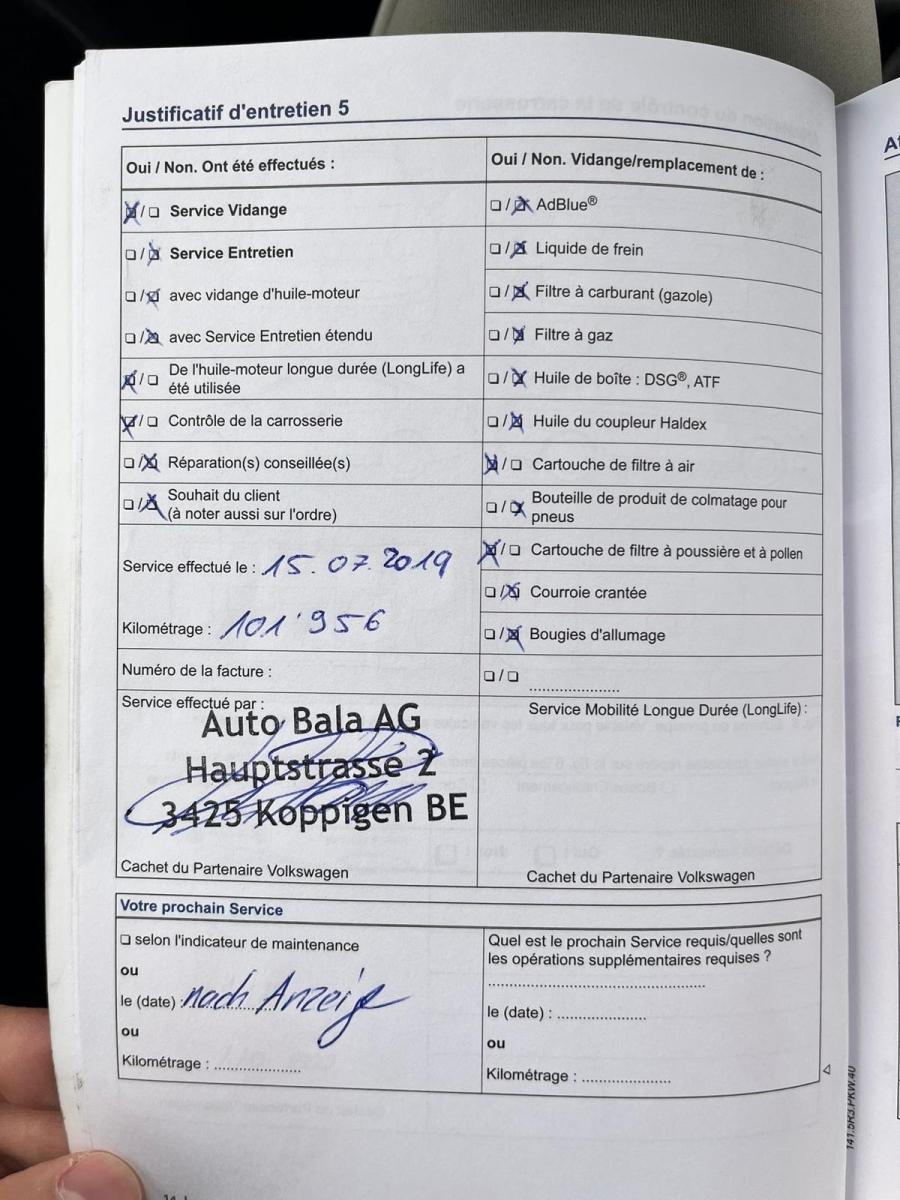 Justificatif d'entretien 5
Oui / Non. Ont été effectués :
☒/☐ Service Vidange
☐/☒ Service Entretien
☐/☒ avec vidange d'huile-moteur
☐/☒ avec Service Entretien étendu
☒/☐ De l'huile-moteur longue durée (LongLife) a
été utilisée
☒/☐ Contrôle de la carrosserie
☐/☒ Réparation(s) conseillée(s)
☐/☒ Souhait du client
(à noter aussi sur l'ordre)
Service effectué le : 15.07.2019
Kilométrage : 101'956
Numéro de la facture :
Service effectué par :
Auto Bala AG
Hauptstrasse 2
3425 Koppigen BE
Cachet du Partenaire Volkswagen
Oui / Non. Vidange/remplacement de :
☐/☒ AdBlue®
☐/☒ Liquide de frein
☐/☒ Filtre à carburant (gazole)
☐/☒ Filtre à gaz
☐/☒ Huile de boîte : DSG®, ATF
☐/☒ Huile du coupleur Haldex
☒/☐ Cartouche de filtre à air
☐/☒ Bouteille de produit de colmatage pour
pneus
☒/☐ Cartouche de filtre à poussière et à pollen
☐/☒ Courroie crantée
☐/☒ Bougies d'allumage
☐/☐ .....................
Service Mobilité Longue Durée (LongLife) :
Cachet du Partenaire Volkswagen
Votre prochain Service
☐ selon l'indicateur de maintenance
ou
le (date) : nach Anzeige
ou
Kilométrage : ....................
Quel est le prochain Service requis/quelles sont
les opérations supplémentaires requises ?
..................................................
le (date) : ....................
ou
Kilométrage : ....................
141.5R3.PKW.40